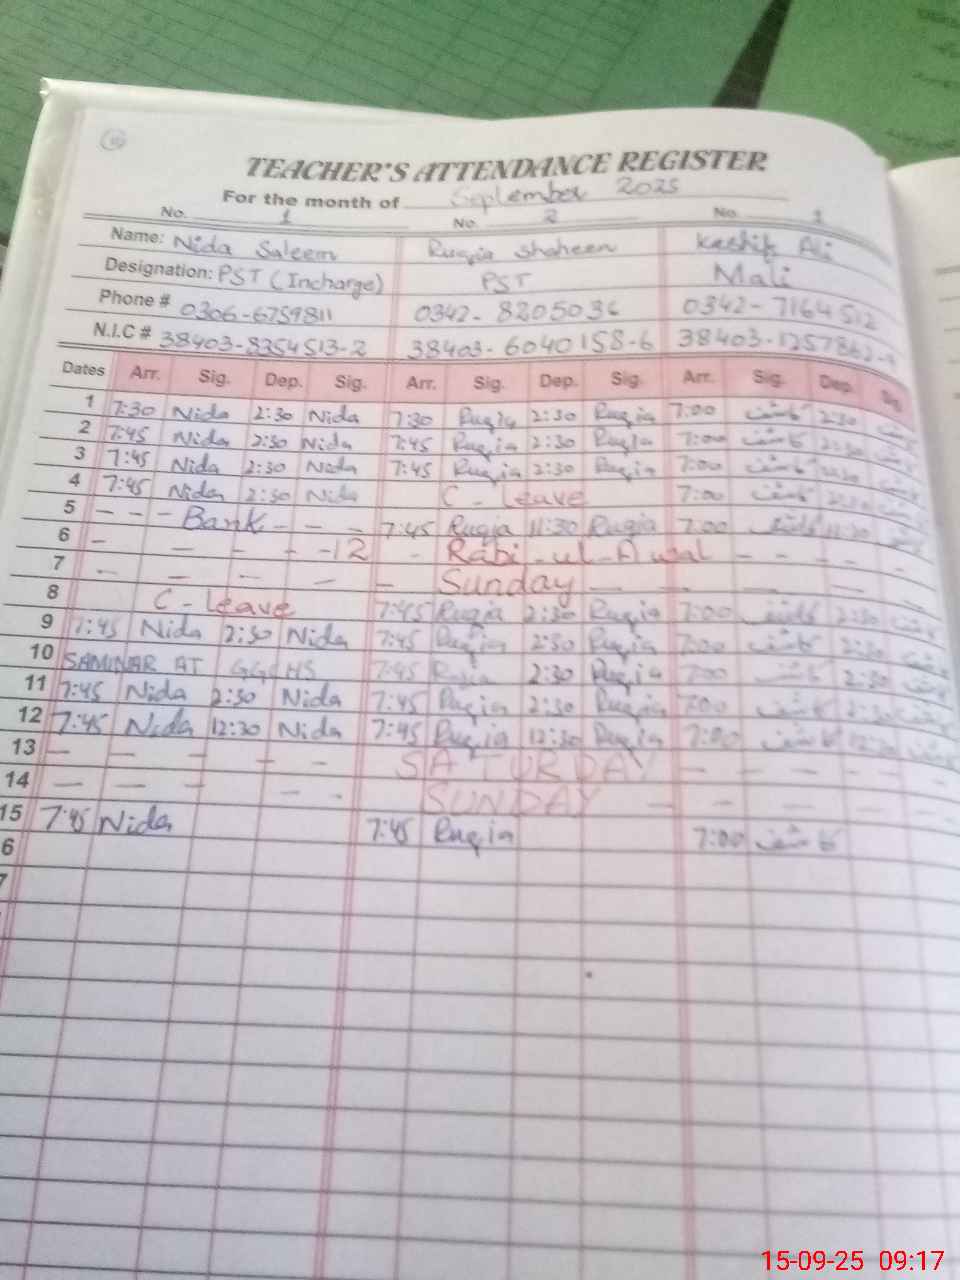 10
TEACHER'S ATTENDANCE REGISTER
For the month of September 2025
No. 1 No. 2 No. 1
Name: Nida Saleem Ruqia Shaheen Kashif Ali
Designation: PST (Incharge) PST Mali
Phone # 0306-6759811 0342-8205036 0342-7164512
N.I.C # 38403-8354513-2 38403-6040158-6 38403-1257862-
Dates Arr. Sig. Dep. Sig. Arr. Sig. Dep. Sig. Arr. Sig. Dep. Sig.
1 7:30 Nida 2:30 Nida 7:30 Ruqia 2:30 Ruqia 7:00 کاشف 2:30 کاشف
2 7:45 Nida 2:30 Nida 7:45 Ruqia 2:30 Ruqia 7:00 کاشف 2:30 کاشف
3 7:45 Nida 2:30 Nida 7:45 Ruqia 2:30 Ruqia 7:00 کاشف 2:30 کاشف
4 7:45 Nida 2:30 Nida C-Leave 7:00 کاشف 2:30 کاشف
5 - - - Bank - - - 7:45 Ruqia 11:30 Ruqia 7:00 کاشف 11:30 کاشف
6 - - - - - 12 - Rabi-ul-Awal - - - - -
7 - - - - - Sunday - - - - -
8 C-Leave 7:45 Ruqia 2:30 Ruqia 7:00 کاشف 2:30 کاشف
9 7:45 Nida 2:30 Nida 7:45 Ruqia 2:30 Ruqia 7:00 کاشف 2:30 کاشف
10 SAMINAR AT GGCHS 7:45 Ruqia 2:30 Ruqia 7:00 کاشف 2:30 کاشف
11 7:45 Nida 2:30 Nida 7:45 Ruqia 2:30 Ruqia 7:00 کاشف 2:30 کاشف
12 7:45 Nida 12:30 Nida 7:45 Ruqia 12:30 Ruqia 7:00 کاشف 12:30 کاشف
13 - - - - - SATURDAY - - - - -
14 - - - - - SUNDAY - - - - -
15 7:45 Nida 7:45 Ruqia 7:00 کاشف
6
7
15-09-25 09:17